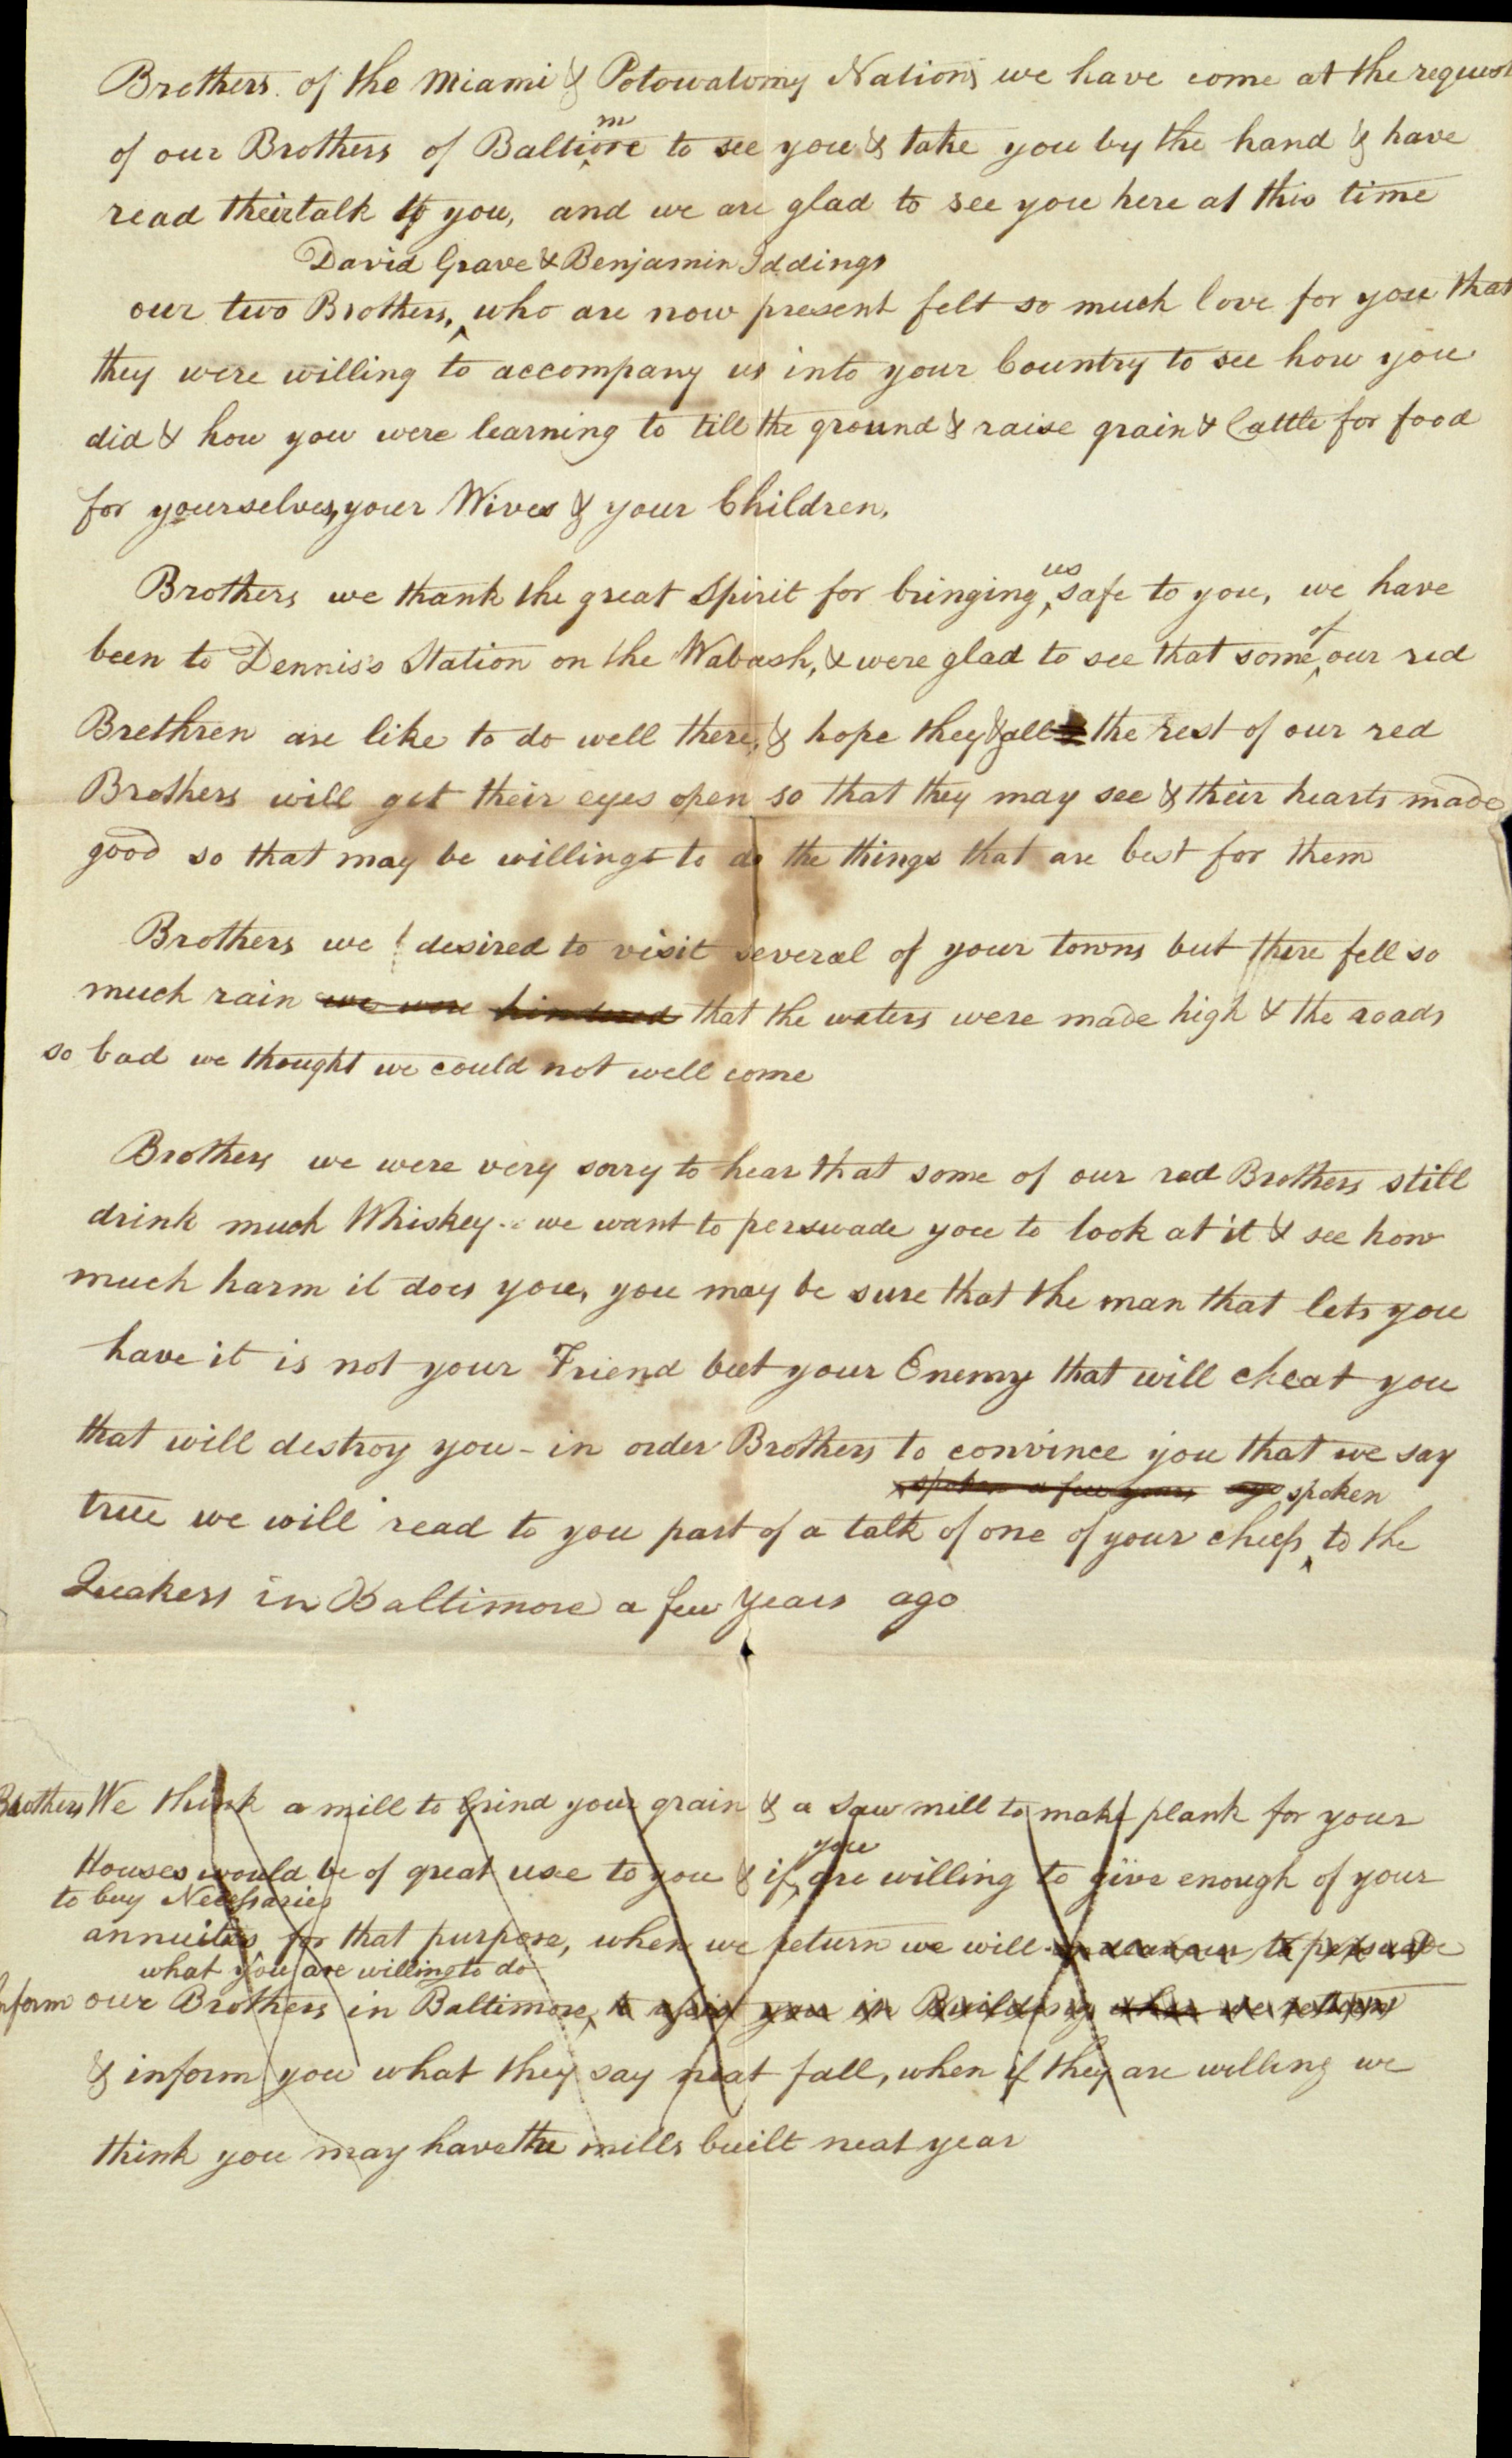 Brothers of the Miami & Potowatomy Nations we have come at the request
of our Brothers of Baltimore to see you & take you by the hand & have
read their talk to you, and we are glad to see you here at this time
David Grave & Benjamin Iddings
our two Brothers, who are now present felt so much love for you that
they were willing to accompany us into your Country to see how you
did & how you were learning to till the ground & raise grain & Cattle for food
for yourselves, your Wives & your Children,
Brothers we thank the great Spirit for bringing us safe to you, we have
been to Dennis's Station on the Wabash, & were glad to see that some of our red
Brethren are like to do well there, & hope they & all the rest of our red
Brothers will get their eyes open so that they may see & their hearts made
good so that may be willing to do the things that are best for them
Brothers we desired to visit several of your towns but there fell so
much rain we were hindered that the waters were made high & the roads
so bad we thought we could not well come
Brothers we were very sorry to hear that some of our red Brothers still
drink much Whiskey - we want to perswade you to look at it & see how
much harm it does you, you may be sure that the man that lets you
have it is not your Friend but your Enemy that will cheat you
that will destroy you - in order Brothers to convince you that we say
spoken a few years ago spoken
true we will read to you part of a talk of one of your cheifs to the
Quakers in Baltimore a few years ago
Brothers We think a mill to Grind your grain & a saw mill to make plank for your
you
Houses would be of great use to you & if are willing to give enough of your
to buy Necessaries
annuities for that purpose, when we return we will endeavour to perswade
what you are willing to do
inform our Brothers in Baltimore, to assist you in Building when we return
& inform you what they say neat fall, when if they are willing we
think you may have the mills built neat year